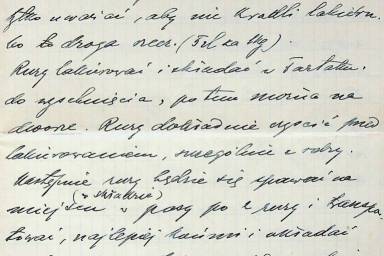 tylko uważać, aby nie kradli lakieru.
bo to droga rzecz. (
Rury lakierować i składać w Tartaku.
do wyschnięcia, potem można na
dworze. Rury dokładnie czyścić przed
lakierowaniem, szczególnie z rdzy.
Następnie rury będzie się spawać na
miejscu (w składzie) w pary po 2 rury i transpo-
tować, najlepiej końmi i układać